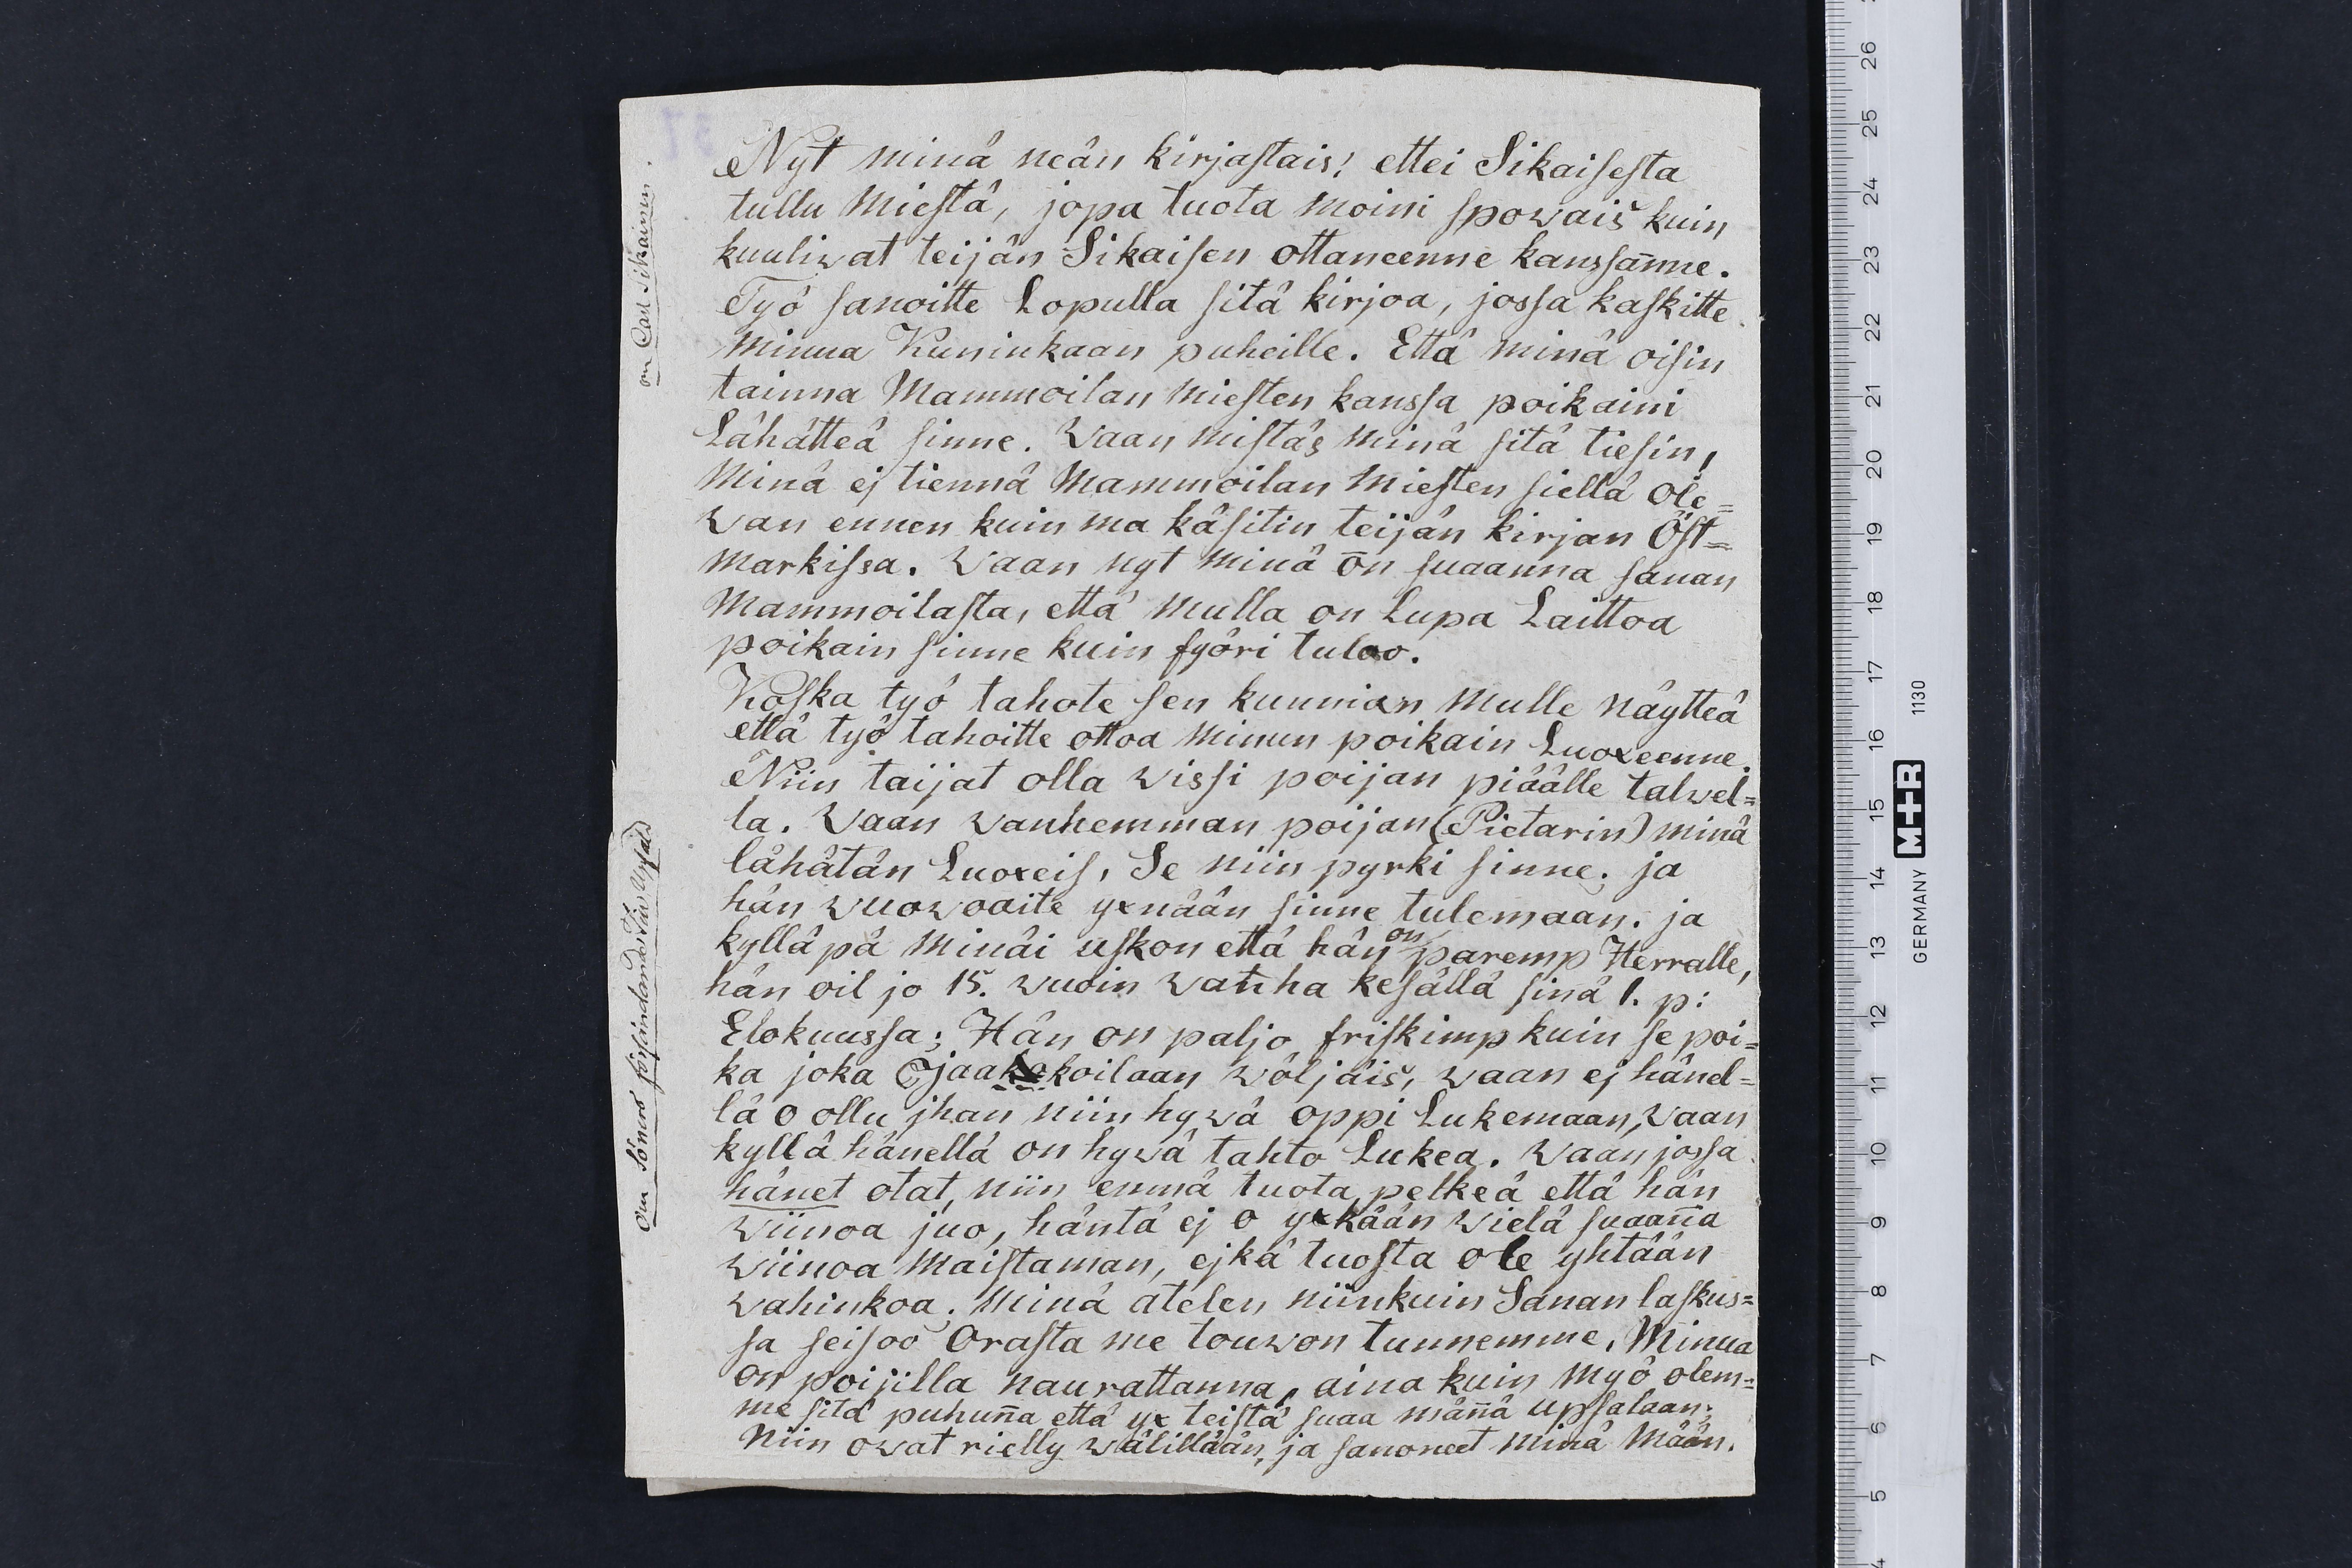 om Carl Sikainen.
Nyt minä neän kirjastais! ettei Sikaisesta
tullu Miestä, jopa tuota moini spowais kuin
kuuliwat teijän Sikaisen ottaneenne kanssān̄ne.
Työ sanoitte Lopulla sitä kirjoa, jossa kaskitte
minua Kuninkaan puheille. Että minä oisin
tainna Mammoilan Miesten kanssa poikaini
Lähätteä sinne. Waan mistäs minä sitä tiesin,
Minä ej tiennä Mammoilan Miesten siellä Ole=
wan ennen kuin ma käsitin teijän kirjan Öst=
markissa. Waan nyt minä ōn suaanna sanan
Mammoilasta, että mulla on Lupa Laittoa
poikain sinne kuin fyöri tuloo.
Koska työ tahote sen kunnian Mulle näytteä
että työ tahoitte ottoa Minun poikain Luoxeenne.
Niin taijat olla wissi poijan piäälle talwel=
la. Waan wanhemman poijan (Pietarin) minä
lähätän Luoxeis, Se niin pyrki sinne. ja
hän wuowoaite yxnään sinne tulemaan. ja
kylläpä Minäi uskon että hän on paremp Herralle,
hän oil jo 15. wuoin wanha kesällä sinä 1. p:
Elokuussa; Hän on paljo friskimp kuin se poi=
ka joka Ojaakkoilaan wöljäis, waan ej hänel=
lä o ollu jhan niin hywä oppi Lukemaan, waan
kyllä hänellä on hywä tahto Lukea. Waan jossa
hänet otat, niin emmä tuota pelkeä että hän
wiinoa juo, häntä ej o yxkään wielä suaan̄a
wiinoa Maistaman, ejkä tuosta ole yhtään
wahinkoa. Minä atelen niinkuin Sanan laskus=
sa seisoo Orasta me touwon tunnemme. Minua
on poijilla naurattanna, aina kuin Myö olem=
me sitä puhun̄a että yx teistä suaa män̄ä upsalaan;
Niin owat rielly wälillään, ja sanoneet Minä Mään.
Om Sönens försändande till Upsala